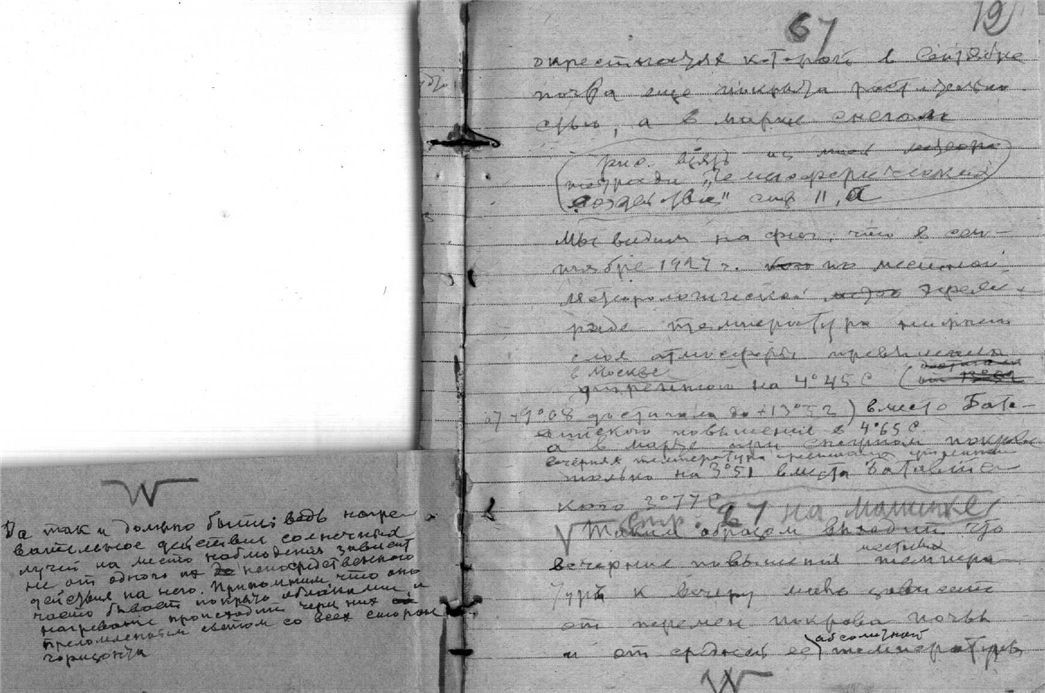 67
19)
окрестностях которой в сентябре
почва еще покрыта растительно
стью, а в марте снегом
рис. взять из моей
тетради "
" стр 11, а
Мы видим на фиг, что в сен-
тябре 1927 г. по месячной
метеорологической
температура
слоя атмосферы
в Москве
утреннего на 4°45 С (
от +9°08 достигала до +13°52) вместо Бата-
вийского повышения в 4°65 С.
а в марте при снежном покрове
вечерняя температура превышала утреннюю
только на 3°51 вместо Батавийс
кого 3°77 С
стр. 67 на машинке
Таким образом выходит что
местных
вечерние повышения темпера
туры к вечеру мало зависят
от перемен покрова почвы
абсолютной
и от средней ее температуры
Да так и должно быть: ведь нагре-
вательное действие солнечных
лучей на место наблюдения зависит
не от одного непосредственного
действия на него. Припомним, что оно
часто бывает покрыто облаками и
нагревание происходит через них
преломленным светом со всех сторон
горизонта